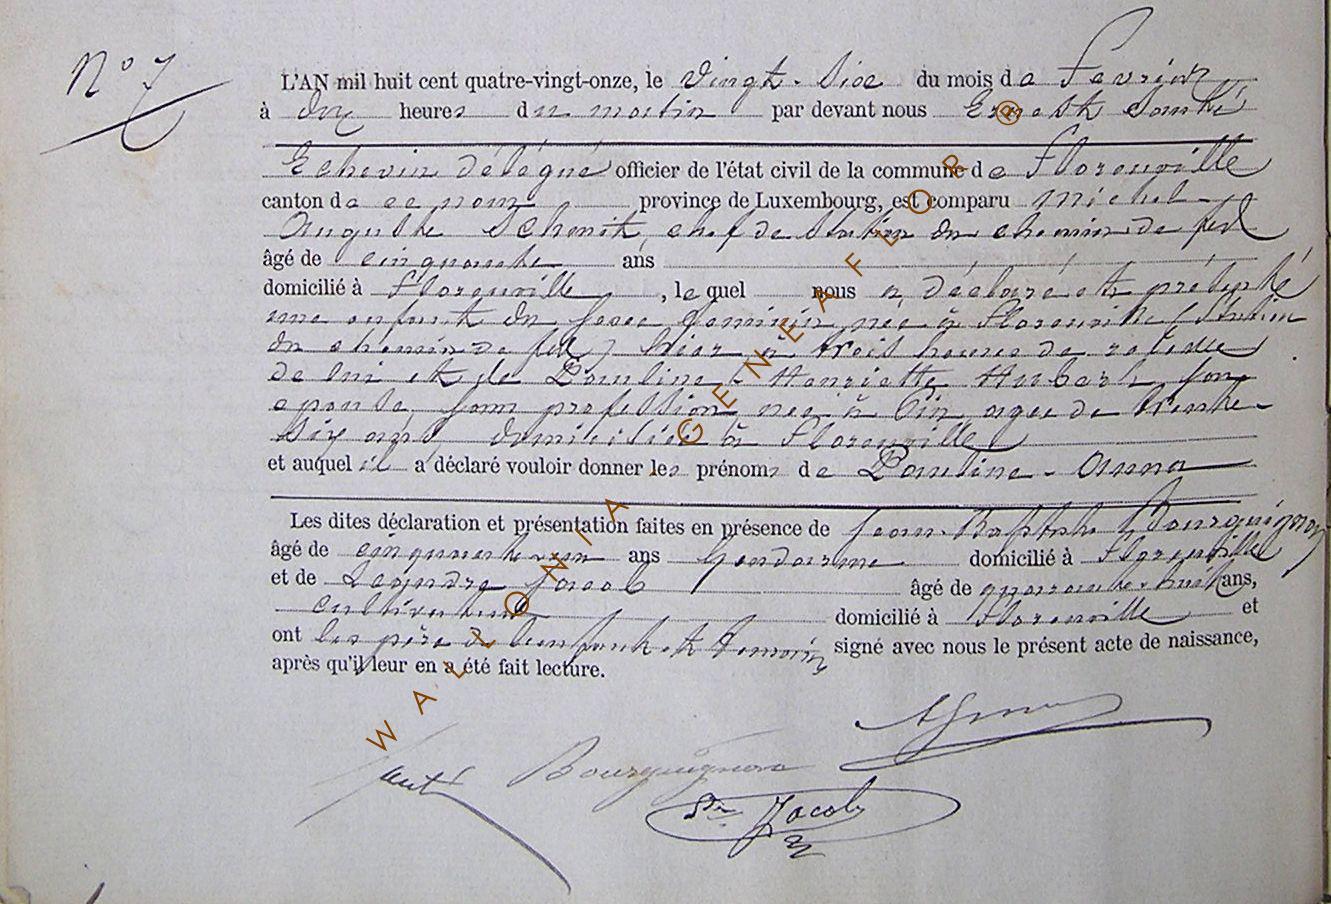 N° 7
L'AN mil huit cent quatre-vingt-onze, le Vingt-Six du mois de Fevrier
à dix heures du matin par devant nous Ernest Santé
Echevin délégué officier de l'état civil de la commune de Florenville
canton de ce nom province de Luxembourg, est comparu Michel-
Auguste Schmit, chef de Station du chemin de fer
âgé de cinquante ans
domicilié à Florenville, lequel nous a déclaré et présenté
une enfant du sexe feminin née à Florenville (Station
du chemin de fer) hier à trois heures de relevée
de lui et de Pauline-Henriette Hubert son
epouse, sans profession née à agee de trente-
six ans, domiciliée à Florenville
et auquel il a déclaré vouloir donner les prénoms de Pauline-Anna
Les dites déclaration et présentation faites en présence de Jean-Baptiste Bourguignon
âgé de cinquante un ans Gendarme domicilié à Florenville
et de Jacob âgé de quarante-huit ans,
cultivateur domicilié à Florenville et
ont les père de l'enfant et temoins signé avec nous le présent acte de naissance,
après qu'il leur en a été fait lecture.
Bourguignon
Jacob
WALLONIA-GENEAFLOR®